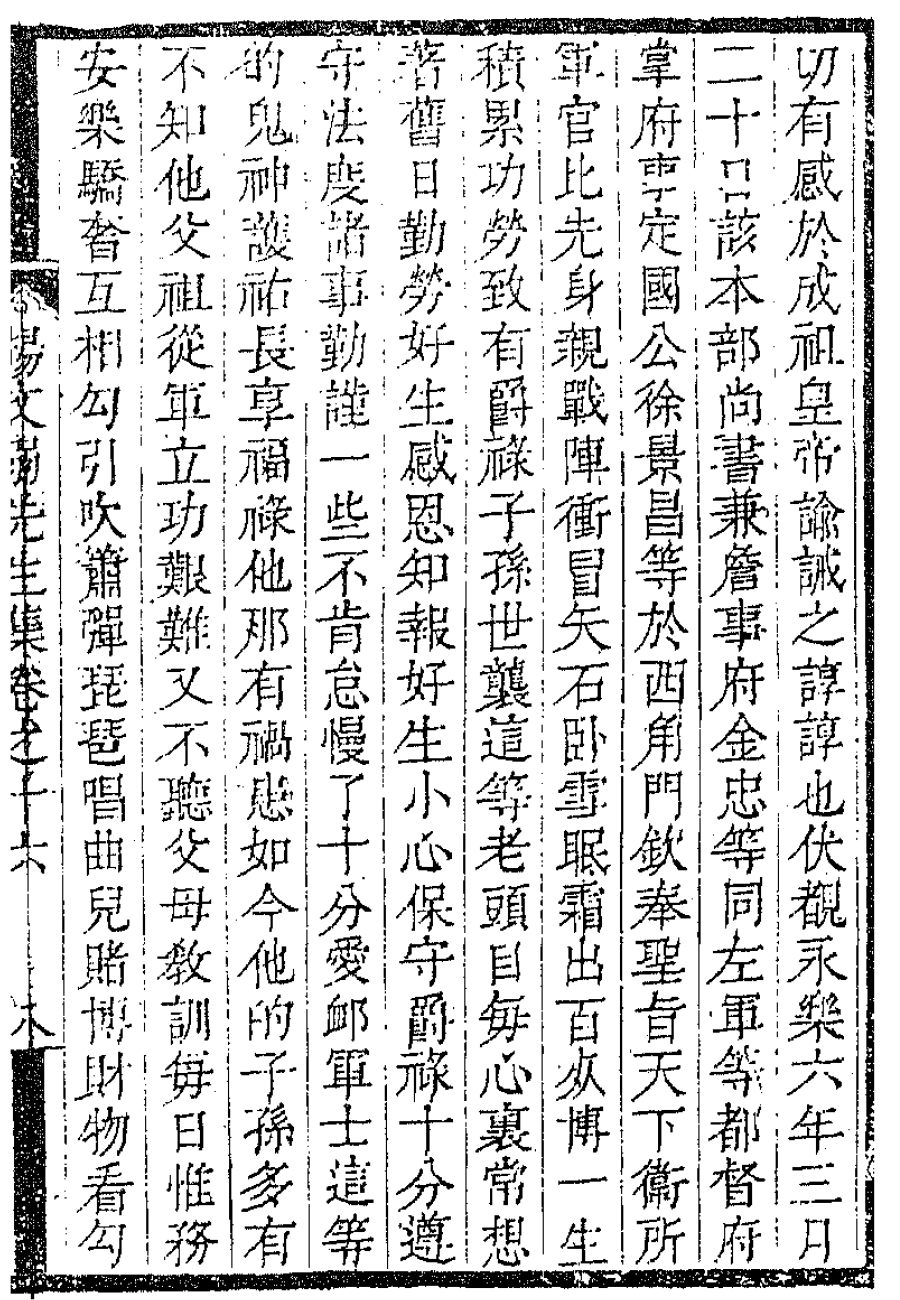 切有感於成祖皇帝諭誡之諄諄也伏覩永樂六年三月
二十日該本部尚書兼詹事府金忠等同左軍等都督府
掌府事定國公徐景昌等於西角門欽奉聖旨天下衛所
軍官比先身親戰陣衝冒矢石卧雪眠霜出百死博一生
積累功勞致有爵祿子孫世襲這等老頭目每心裏常想
著舊日勤勞好生感恩知報好生小心保守爵祿十分遵
守法度諸事勤謹一些不肯怠慢了十分愛卹軍士這等
的鬼神護祐長享福祿他那有禍愆如今他的子孫多有
不知他父祖從軍立功艱難又不聽父母教訓每日惟務
安樂驕奢互相勾引吹簫彈琵琶唱曲兒賭博財物看勾
楊文 先生集卷之十六